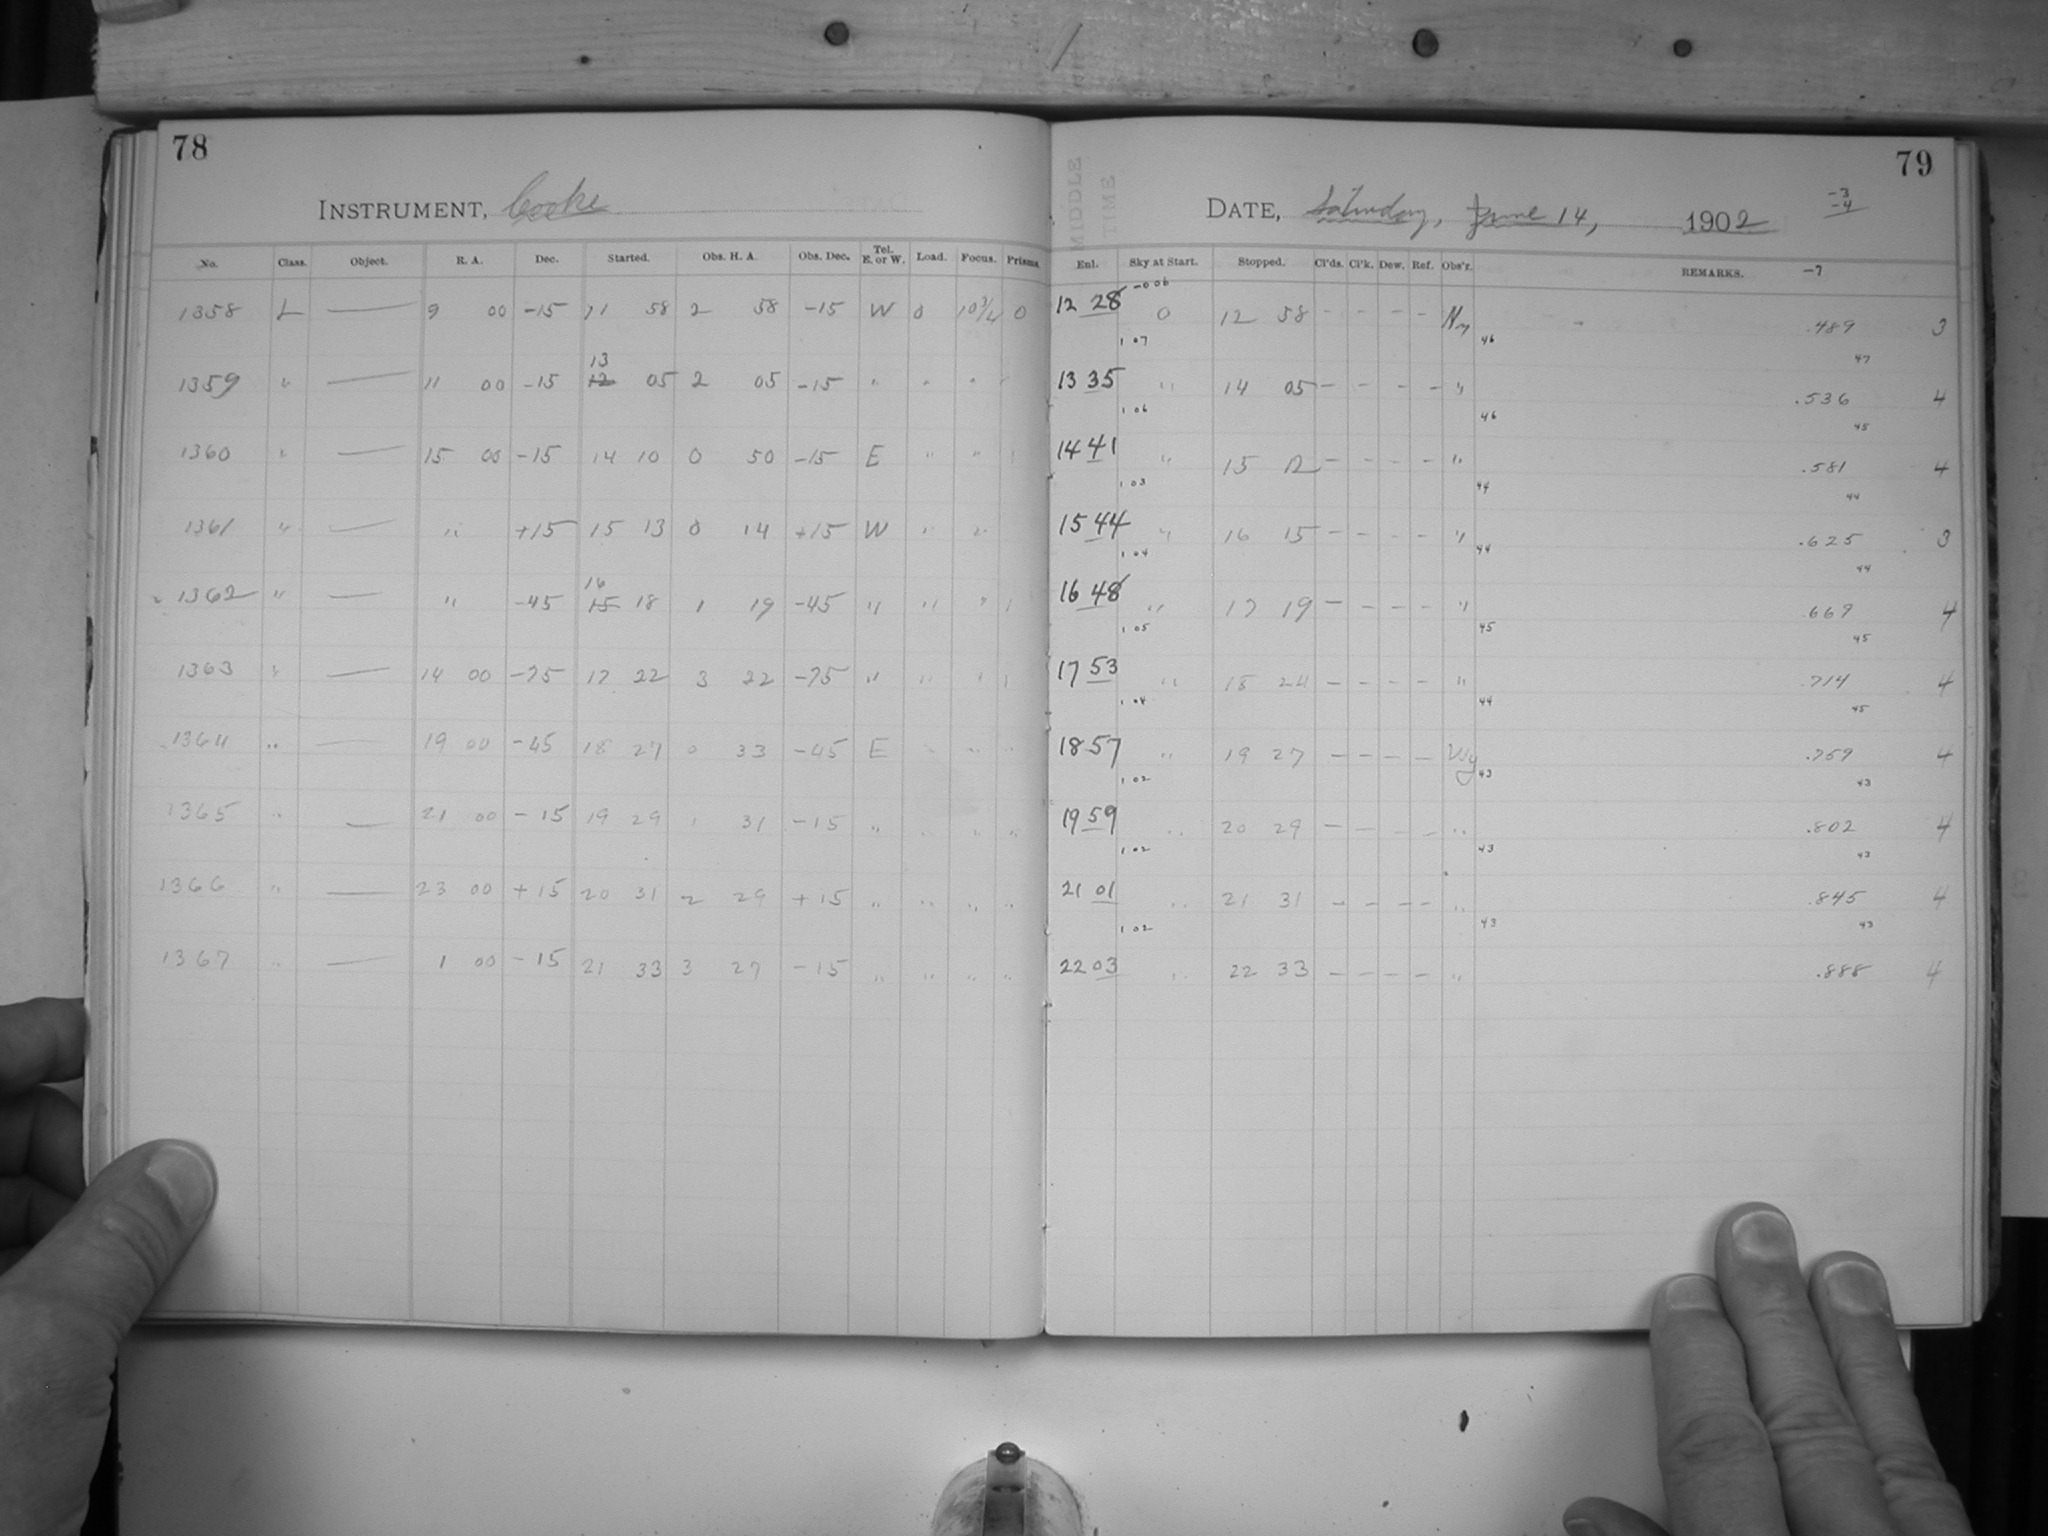 78
INSTRUMENT, Cooke
No. Class. Object. R. A. Dec. Started. Obs. H. A. Obs. Dec. Tel. E. or W. Load. Focus. Prisms.
1358 L — 9 00 -15 11 58 2 58 -15 W 0 10 3/4 0
1359 " — 11 00 -15 13 12 05 2 05 -15 " " " "
1360 " — 15 00 -15 14 10 0 50 -15 E " " "
1361 " — " +15 15 13 0 14 +15 W " "
1362 " — " -45 16 15 18 1 19 -45 " " " "
1363 " — 14 00 -75 17 22 3 22 -75 " " " "
1364 " — 19 00 -45 18 27 0 33 -45 E " " "
1365 " — 21 00 -15 19 29 1 31 -15 " " " "
1366 " — 23 00 +15 20 31 2 29 +15 " " " "
1367 " — 1 00 -15 21 33 3 27 -15 " " " "
79
MIDDLE TIME
DATE, Saturday, June 14, 1902
-3
-4
-7
Enl. Sky at Start. Stopped. Cl'ds. Cl'k. Dew. Ref. Obs'r. REMARKS.
-006
12 28 0 12 58 - - - - .489 3
1 07 46 47
13 35 " 14 05 - - - - " .536 4
1 06 46 45
14 41 " 15 12 - - - - " .581 4
1 03 44 44
15 44 " 16 15 - - - - " .625 3
1 04 44 44
16 48 " 17 19 - - - - " .669 4
1 05 45 45
17 53 " 18 24 - - - - " .714 4
1 04 44 45
18 57 " 19 27 - - - - .759 4
1 02 43 43
19 59 " 20 29 - - - - " .802 4
1 02 43 43
21 01 " 21 31 - - - - " .845 4
1 02 43 43
22 03 " 22 33 - - - - " .888 4